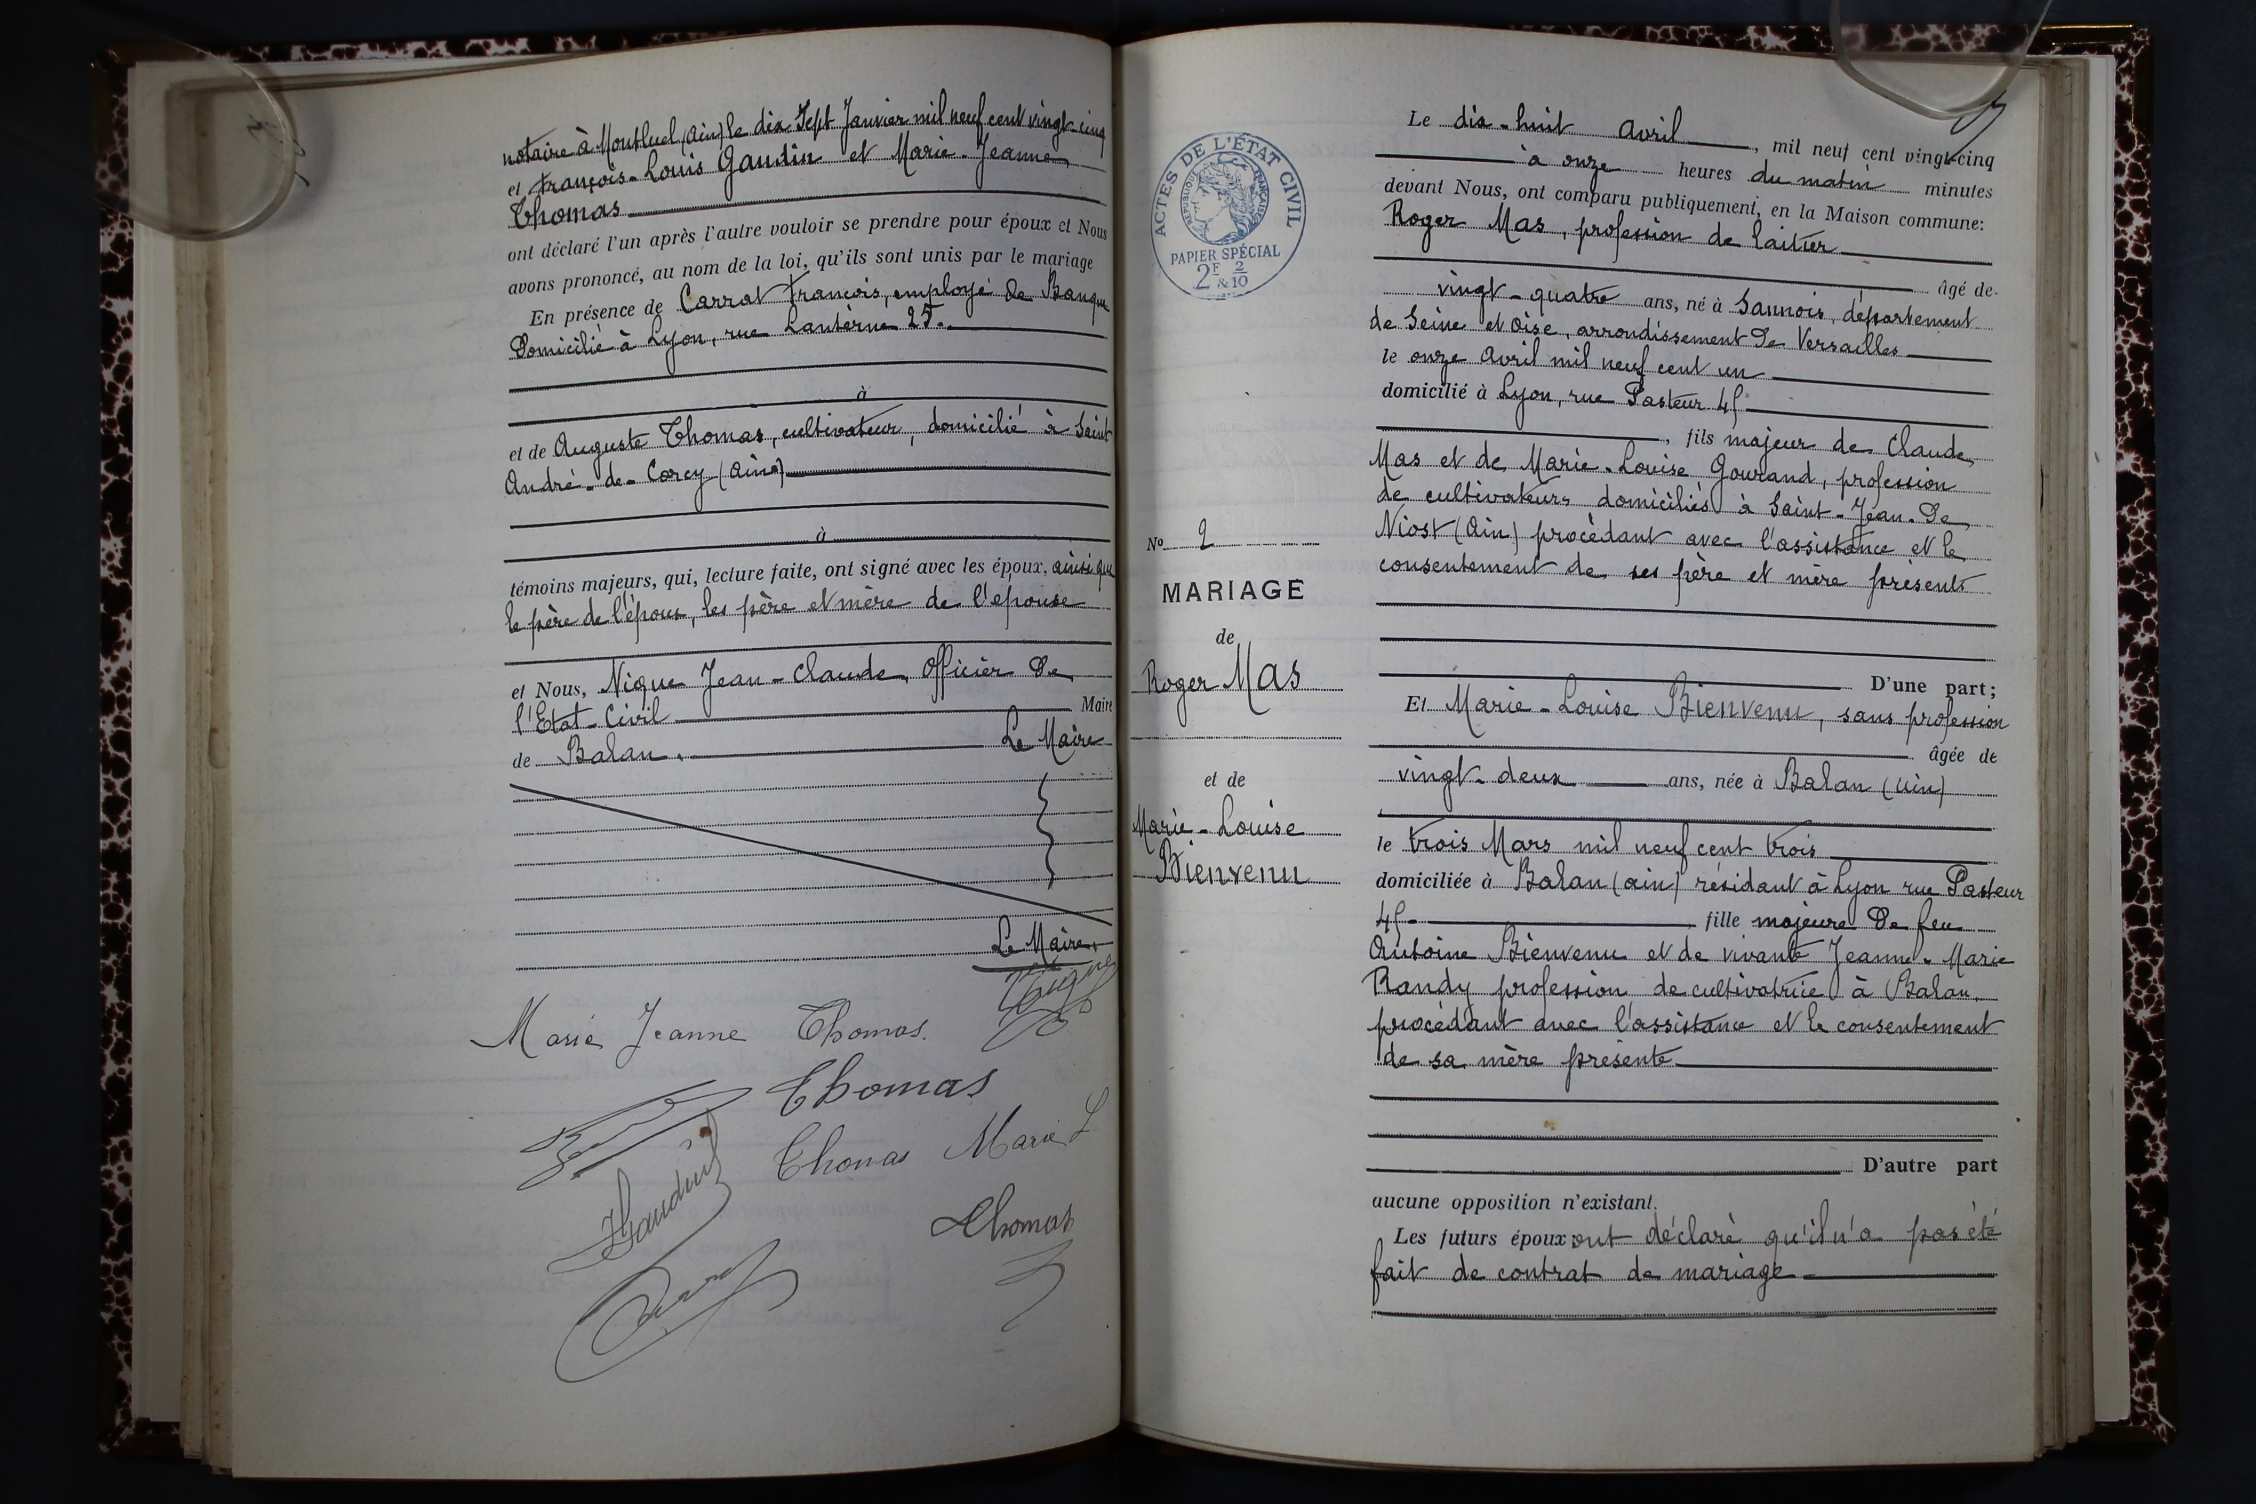 notaire à Montluel (Ain) le dix Sept Janvier mil neuf cent vingt-cinq
et François-Louis Gaudin et Marie-Jeanne
Thomas
ont déclaré l'un après l'autre vouloir se prendre pour époux et Nous
avons prononcé, au nom de la loi, qu'ils sont unis par le mariage
En présence de Carrat François, employé de Banque
Domicilié à Lyon, rue Lanterne 25.
à
et de Auguste Thomas, cultivateur, domicilié à Saint
André-de-Corcy (Ain)
à
témoins majeurs, qui, lecture faite, ont signé avec les époux, ainsi que
le père de l'époux, les père et mère de l'épouse
et Nous, Nique Jean-Claude, Officier de
l'Etat-Civil Maire
de Balan. Le Maire
Le Maire,
Nique
Marie Jeanne Thomas.
Thomas
Thomas Marie L
Gaudin
Thomas
ACTES DE L'ÉTAT CIVIL
RÉPUBLIQUE FRANÇAISE
PAPIER SPÉCIAL
2F & 2/10
No 2
MARIAGE
de
Roger Mas
et de
Marie-Louise
Bienvenu
Le dix-huit avril, mil neuf cent vingt-cinq
à onze heures du matin minutes
devant Nous, ont comparu publiquement, en la Maison commune:
Roger Mas, profession de laitier
âgé de
vingt-quatre ans, né à Sannois, département
de Seine et Oise, arrondissement de Versailles
le onze Avril mil neuf cent un
domicilié à Lyon, rue Pasteur 45
, fils majeur de Claude
Mas et de Marie-Louise Gourand, profession
de cultivateurs domiciliés à Saint-Jean-de
Niost (Ain) procédant avec l'assistance et le
consentement de ses père et mère présents
D'une part;
Et Marie-Louise Bienvenu, sans profession
âgée de
vingt-deux ans, née à Balan (Ain)
le trois Mars mil neuf cent trois
domiciliée à Balan (ain) résidant à Lyon rue Pasteur
45 fille majeure de feu
Antoine Bienvenu et de vivante Jeanne-Marie
Randy profession de cultivatrice à Balan
procédant avec l'assistance et le consentement
de sa mère présente
D'autre part
aucune opposition n'existant.
Les futurs époux ont déclaré qu'il n'a pas été
fait de contrat de mariage